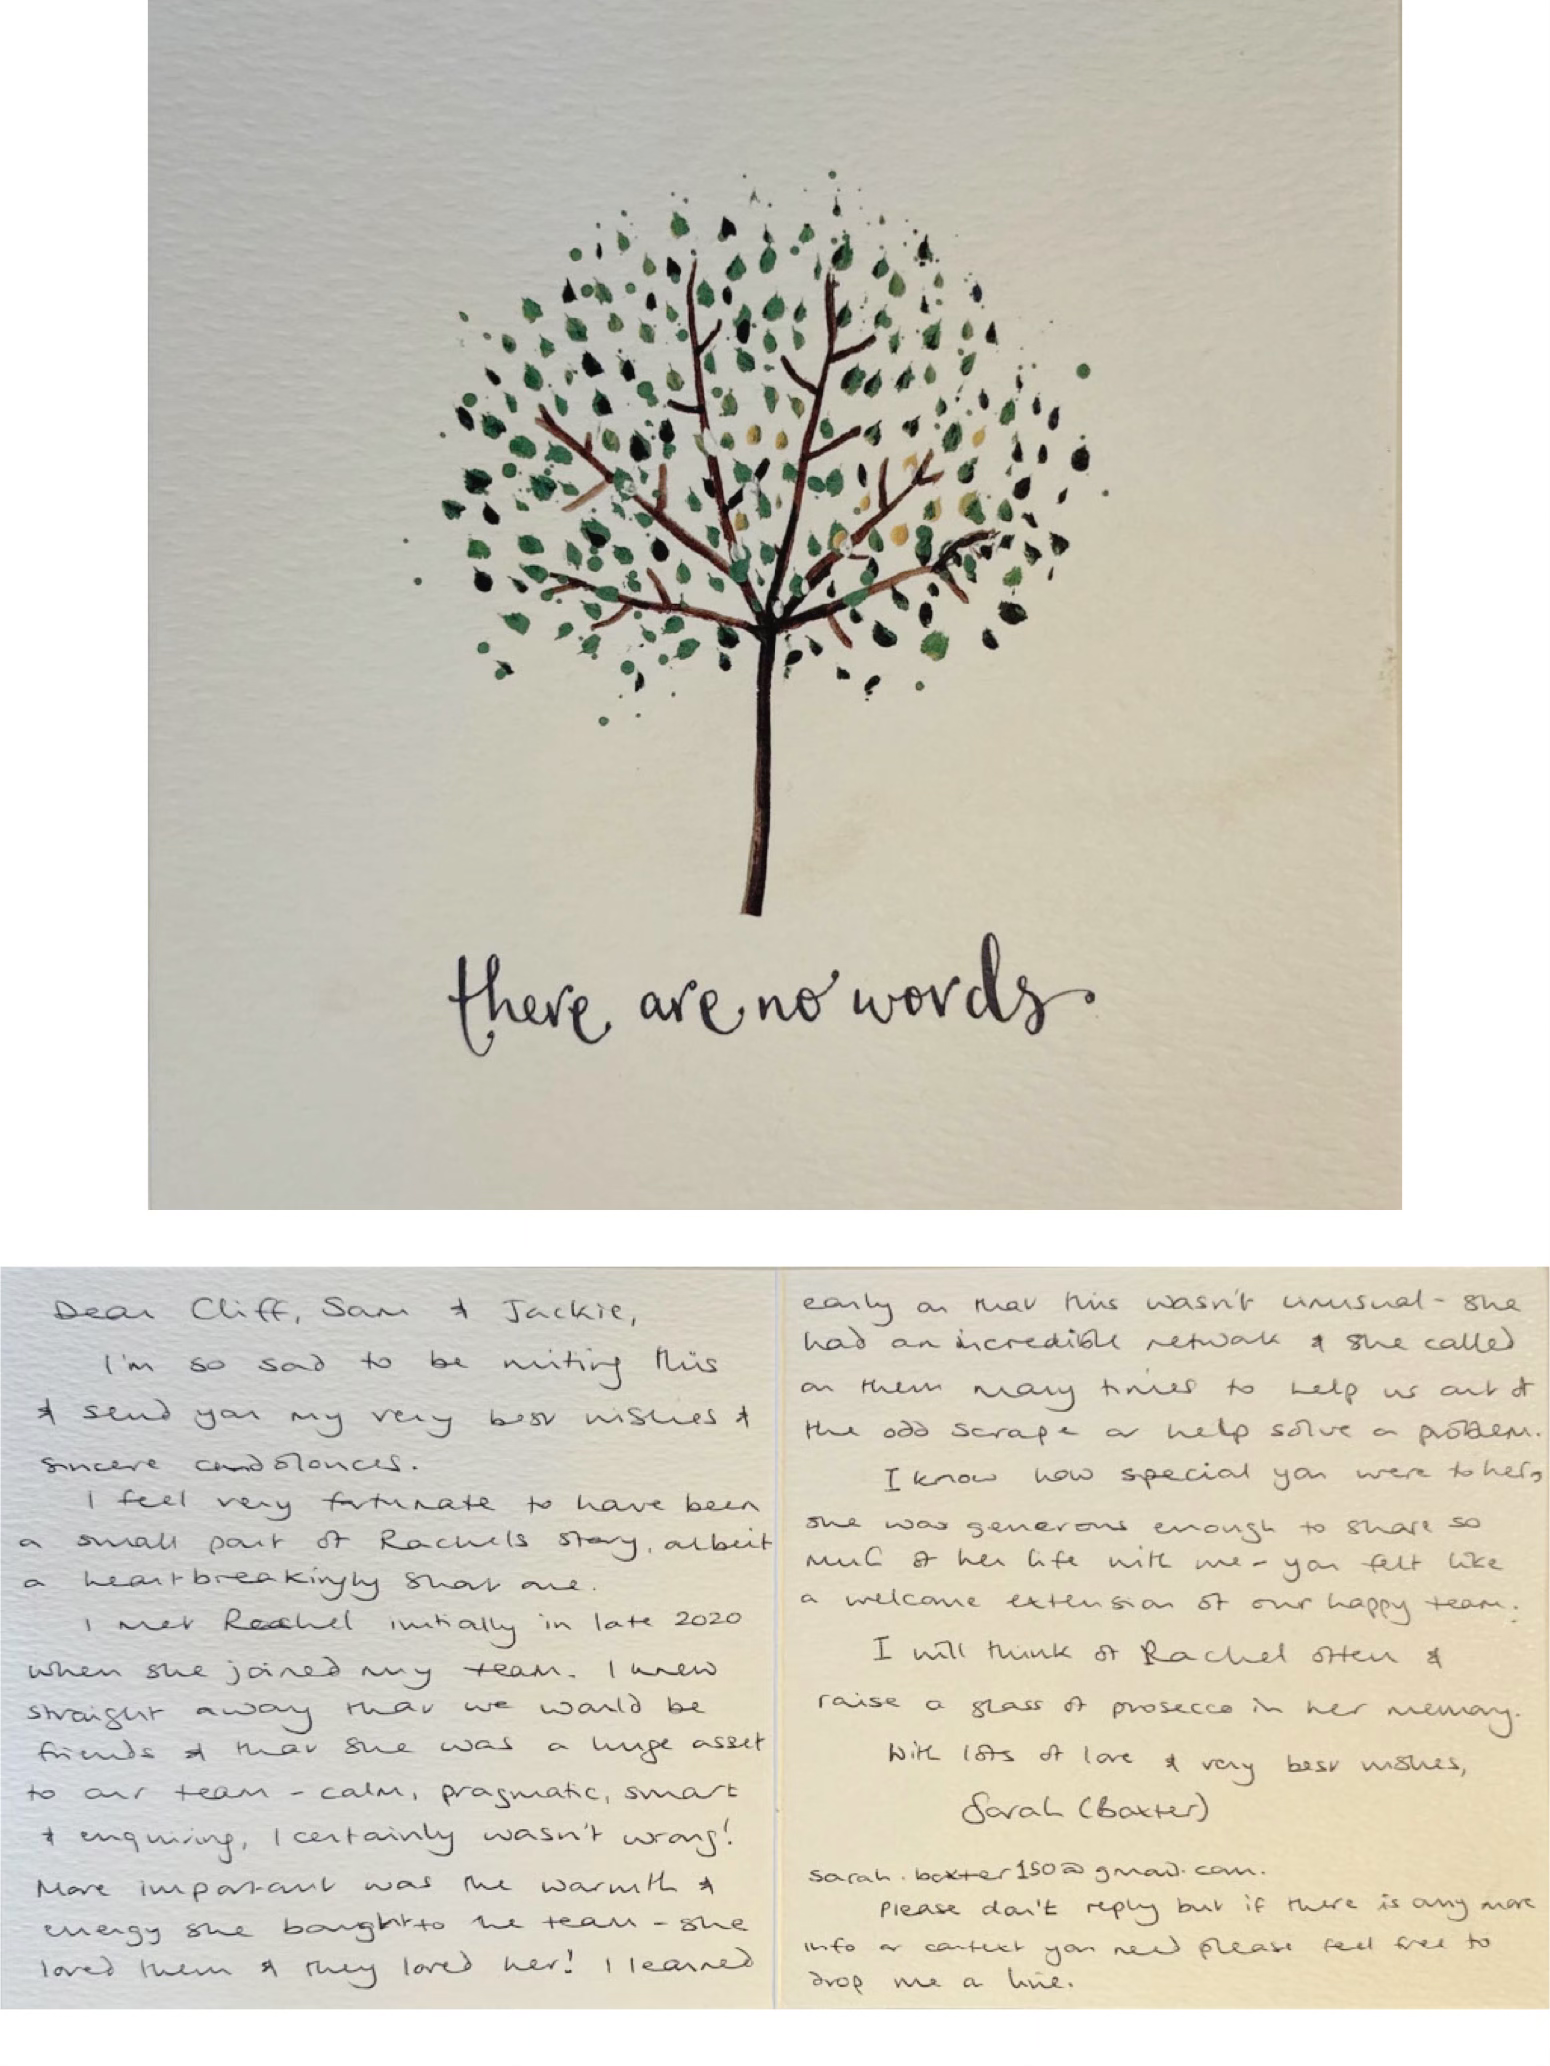 there are no words
Dear Cliff, Sam & Jackie,
I'm so sad to be writing this
& send you my very best wishes &
sincere condolences.
I feel very fortunate to have been
a small part of Rachels story, albeit
a heartbreakingly short one.
I met Rachel initially in late 2020
when she joined my team. I knew
straight away that we would be
friends & that she was a huge asset
to our team - calm, pragmatic, smart
& enquiring, I certainly wasn't wrong!
More important was the warmth &
energy she bought to the team - she
loved them & they loved her! I learned
early on that this wasn't unusual - she
had an incredible network & she called
on them many times to help us out of
the odd scrape or help solve a problem.
I know how special you were to her,
she was generous enough to share so
much of her life with me - you felt like
a welcome extension of our happy team.
I will think of Rachel often &
raise a glass of prosecco in her memory.
With lots of love & very best wishes,
Sarah (Baxter)
sarah.baxter150@gmail.com.
Please don't reply but if there is any more
info or context you need please feel free to
drop me a line.